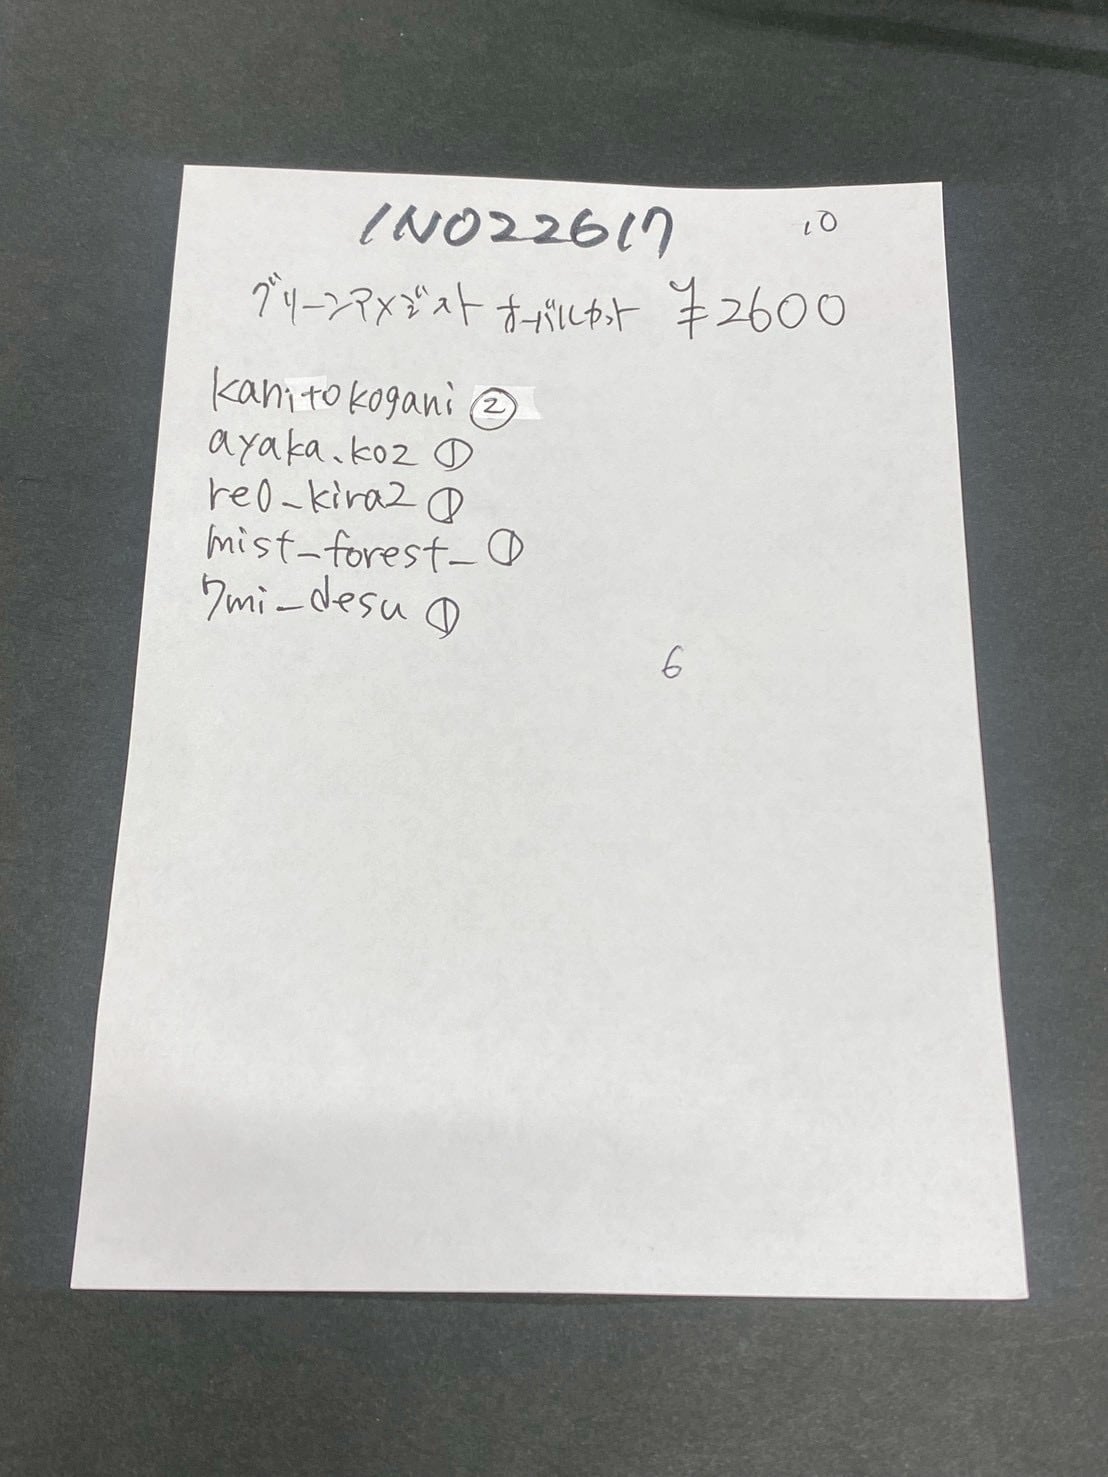 1NO22617 10
グリーンアメジスト オーバルカット ¥2600
kanitokogani ②
ayaka.koz ①
re0_kira2 ①
mist_forest_ ①
7mi_desu ①
6